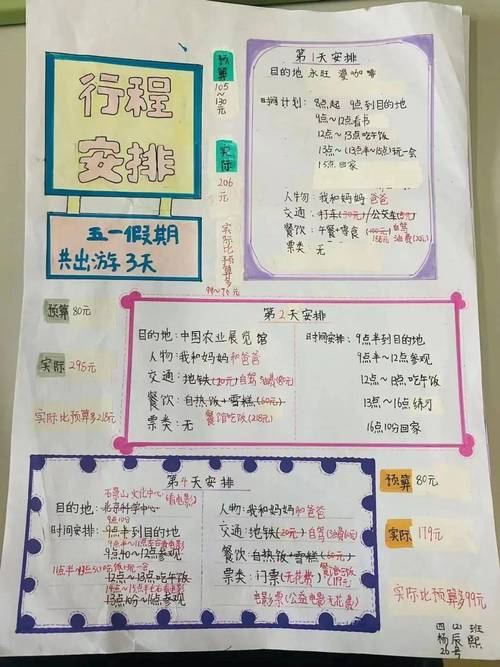 行程
安排
五一假期
共出游3天
预算
105
—
130
元
实际
206
元
实际
比
预算
多
第1天安排
目的地 永旺 漫咖啡
时间计划: 8点起 9点到目的地
9点~12点看书
12点~13点吃午饭
13点~(13点半~15点)玩一会
15点回家
人物: 我和妈妈 爸爸
交通: 打车(30元)/公交车
自驾
餐饮: 午餐+零食(100元)
186元 油费(20元)
票类: 无
预算 80元
实际 295元
实际比预算多215元
第2天安排
目的地: 中国农业展览馆
人物: 我和妈妈和爸爸
交通: 地铁(20元) 自驾 油费
餐饮: 自热饭+雪糕(60元)
餐馆吃饭(215元)
票类: 无
时间安排: 9点半到目的地
9点半~12点参观
12点~13点吃午饭
13点~16点练习
16点10分回家
第4天安排
石景山文化中心(看电影)
目的地: 北京科学中心
9点10分
时间安排: 9点半到目的地
9点40~12点参观
12点~13点吃午饭
13点10分~16点参观
人物: 我和妈妈和爸爸
交通: 地铁(20元) 自驾
餐饮: 自热饭+雪糕(60元)
票类: 门票(无花费)
电影票(公益电影无花费)
预算 80元
实际 179元
实际比预算多99元
四山班
杨辰熙
26号